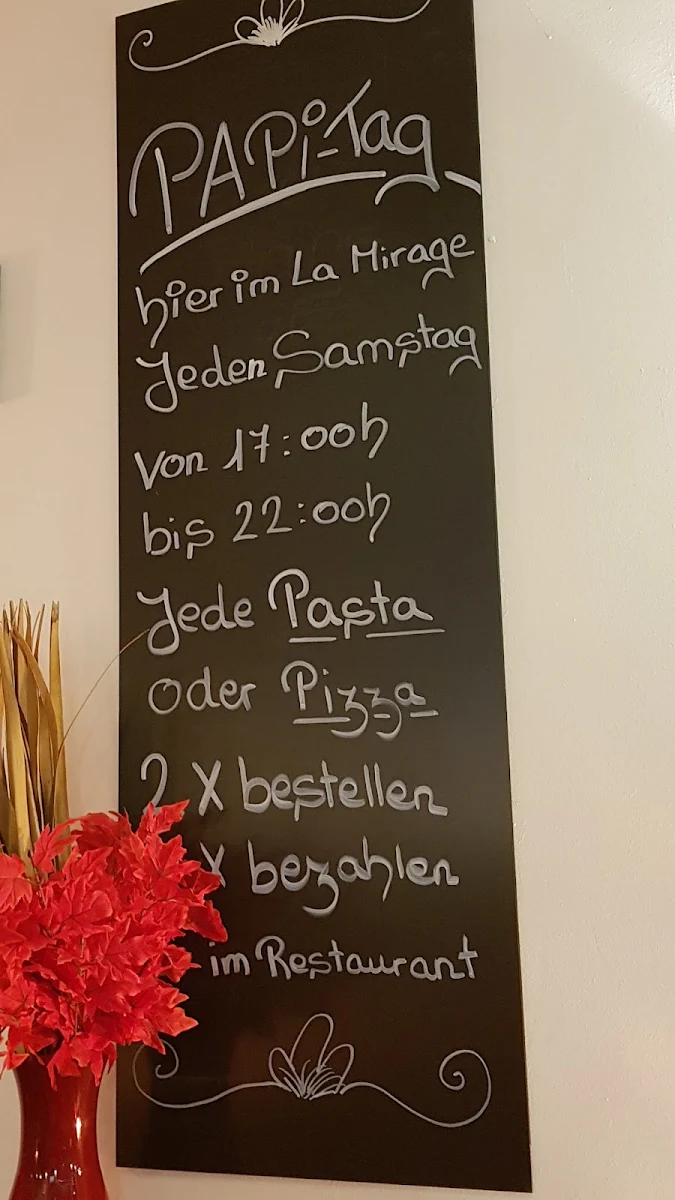 PAPi-Tag
hier im La Mirage
Jeden Samstag
Von 17:00h
bis 22:00h
Jede Pasta
oder Pizza
2 X bestellen
X bezahlen
im Restaurant